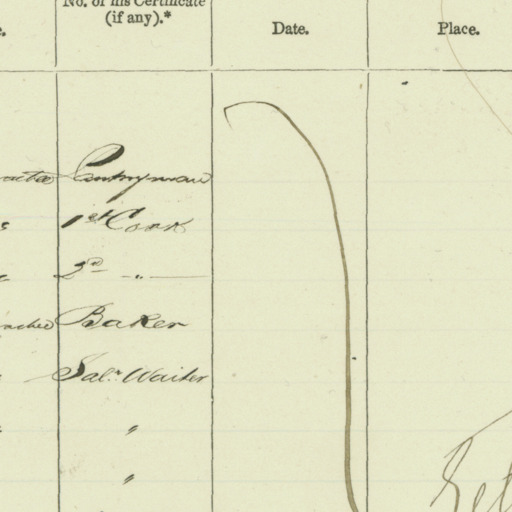 No. of his Certificate
(if any).*
Date.
Place.
Pantryman
1st Cook
2nd "
Baker
Salr. Waiter
"
"